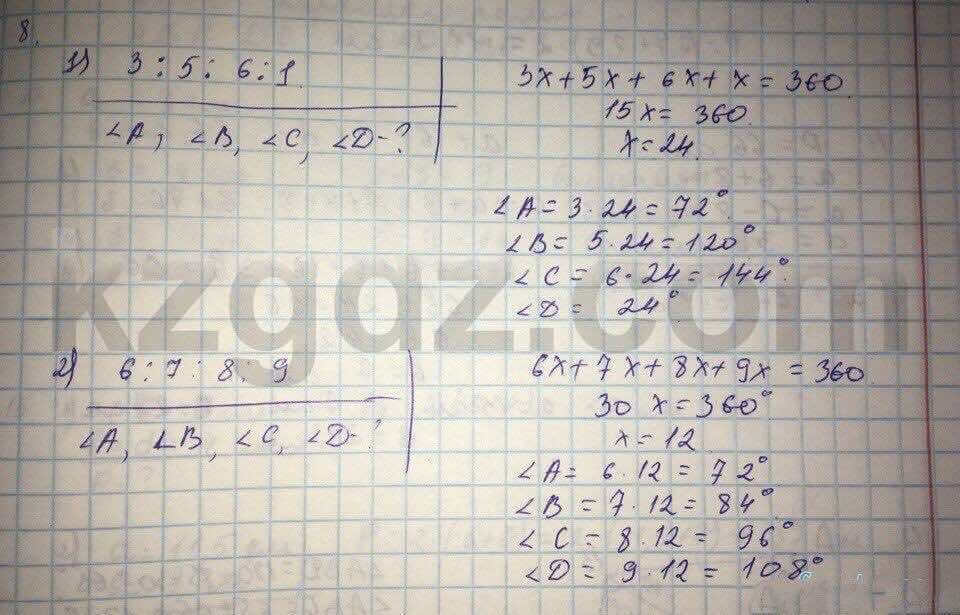 8.
1) 3 : 5 : 6 : 1.
∠A, ∠B, ∠C, ∠D-?
3x+5x+6x+x=360.
15x=360
x=24.
∠A=3·24=72°.
∠B=5·24=120°
∠C=6·24=144°.
∠D=24°.
2) 6 : 7 : 8 : 9
∠A, ∠B, ∠C, ∠D-?
6x+7x+8x+9x=360.
30x=360°
x=12
∠A=6·12=72°
∠B=7·12=84°.
∠C=8·12=96°
∠D=9·12=108°
kzgdz.com